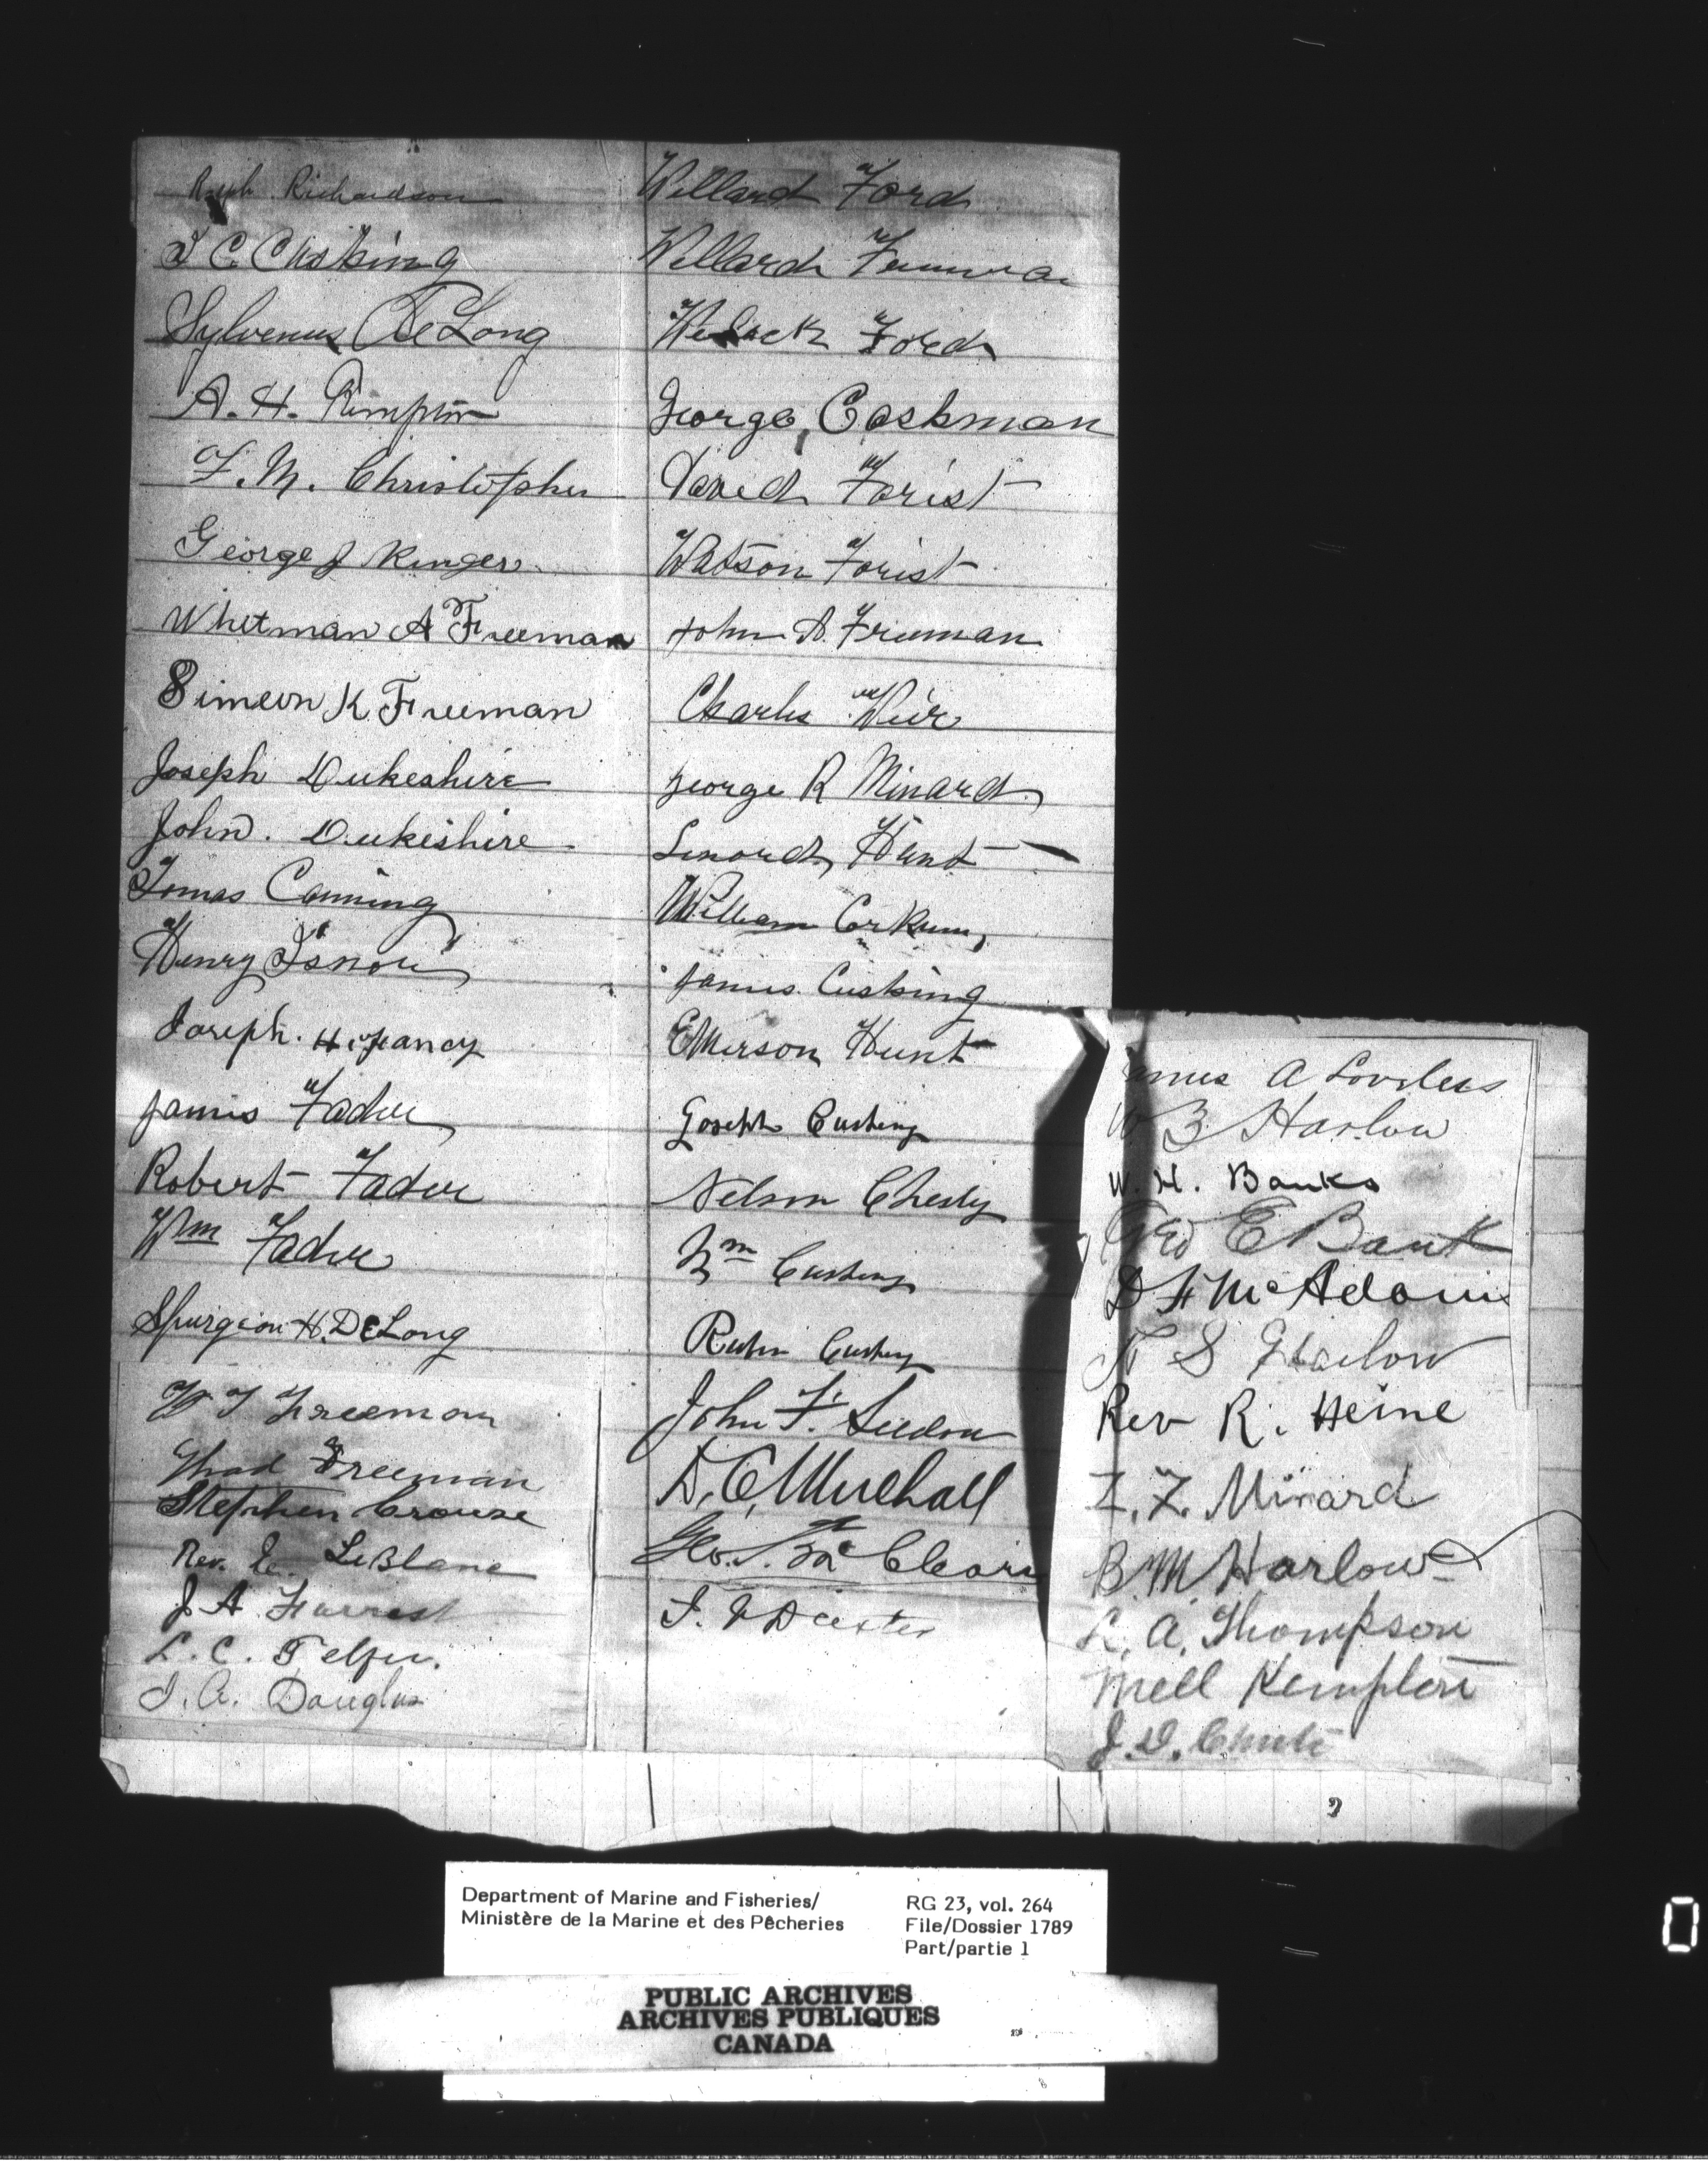 Ralph Richardson
I C Cushing
Sylvenus DeLong
A. H. Kempton
F. M. Christopher
George J Ringer
Whitman A Freeman
Simeon K. Freeman
Joseph Dukeshire
John. Dukeshire
Tomas Canning
Henry Isnor
Joseph. H. Francy
James Fader
Robert Fader
Wm Fader
Spurgeon H. DeLong
W T Freeman
Thad Freeman
Stephen Crouse
Rev. LeBlanc
J A Forrest
L. C. Telfer.
J. A. Douglas
Willard Ford
Willard Freeman
Ford
George Coshman
David Forist
Watson Forist
John A. Freeman
Charles Wier
George R Minard
Lenord Hunt
William Corkum,
James Cushing
Emerson Hunt
Joseph Cushing
Nelson Chesly
Wm Cushing
Cushing
John F.
D. C. Mulhall
Geo. Mc
Dexter
James A Loveless
W B Harlow
W. H. Banks
Geo E Bank
D H McAdam
S Harlow
Rev R. Heine
Z. Z. Minard
B. M Harlow
L. A. Thompson
Mell Kempton
J. D. Chute
2
Department of Marine and Fisheries/
Ministère de la Marine et des Pêcheries
RG 23, vol. 264
File/Dossier 1789
Part/partie 1
PUBLIC ARCHIVES
ARCHIVES PUBLIQUES
CANADA
0